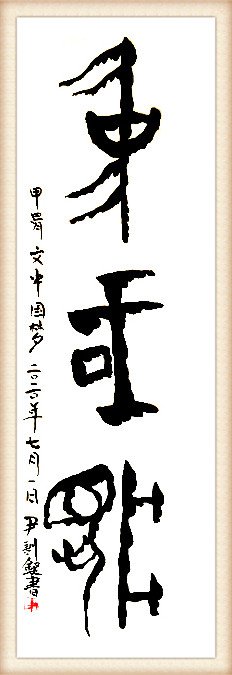 中国梦
甲骨文中国梦 二〇二〇年七月一日 尹 書